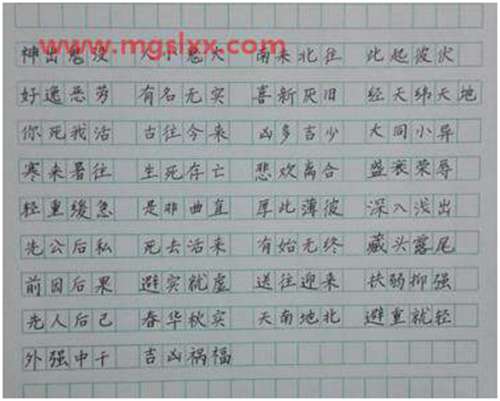 www.mgslxx.com
神出鬼没 人小鬼大 南来北往 此起彼伏
好逸恶劳 有名无实 喜新厌旧 经天纬天地
你死我活 古往今来 凶多吉少 大同小异
寒来暑往 生死存亡 悲欢离合 盛衰荣辱
轻重缓急 是非曲直 厚此薄彼 深入浅出
先公后私 死去活来 有始无终 藏头露尾
前因后果 避实就虚 送往迎来 扶弱抑强
先人后己 春华秋实 天南地北 避重就轻
外强中干 吉凶祸福